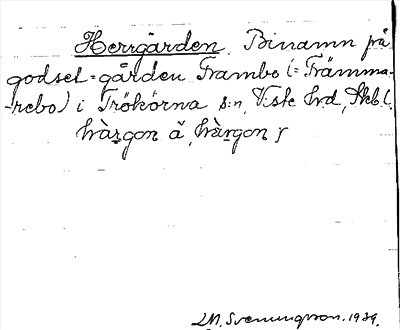 Herrgården. Binamn på
godset = gården Frambo (= Främma-
-rebo) i Trökörna s:n, Viste hrd, Skb.l.
hàrgon å, hàrgon
SM. Svenungsson. 1939.